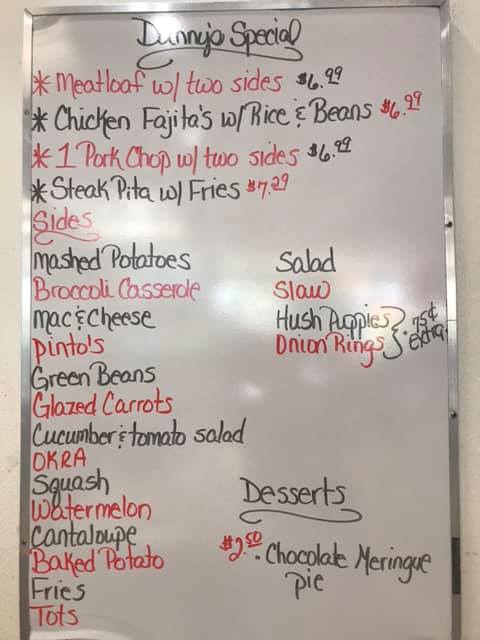 Dunny's Special
* Meatloaf w/ two sides $6.99
* Chicken Fajita's w/ Rice & Beans $6.99
* 1 Pork Chop w/ two sides $6.99
* Steak Pita w/ Fries $7.29
Sides
Mashed Potatoes
Broccoli Casserole
Mac & Cheese
Pinto's
Green Beans
Glazed Carrots
Cucumber & tomato salad
OKRA
Squash
Watermelon
Cantaloupe
Baked Potato
Fries
Tots
Salad
Slaw
Hush Puppies
Onion Rings
.75¢
extra
Desserts
$2.50 · Chocolate Meringue
pie